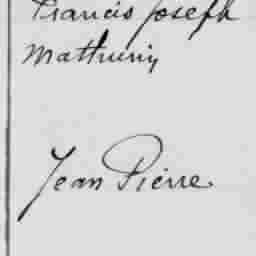 Francis Joseph
Mathurin
Jean Pierre